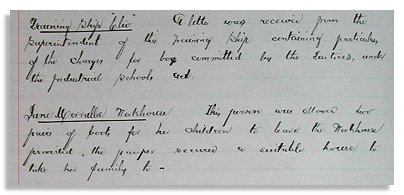 Training Ship Clio   A letter was received from the
Superintendent of this Training Ship containing particulars
of the charges for boys committed by the Justices, under
the Industrial Schools Act.
Jane Workhouse   This person was allowed two
pairs of boots for her children to leave the Workhouse
provided the pauper secured a suitable house to
take her family to -